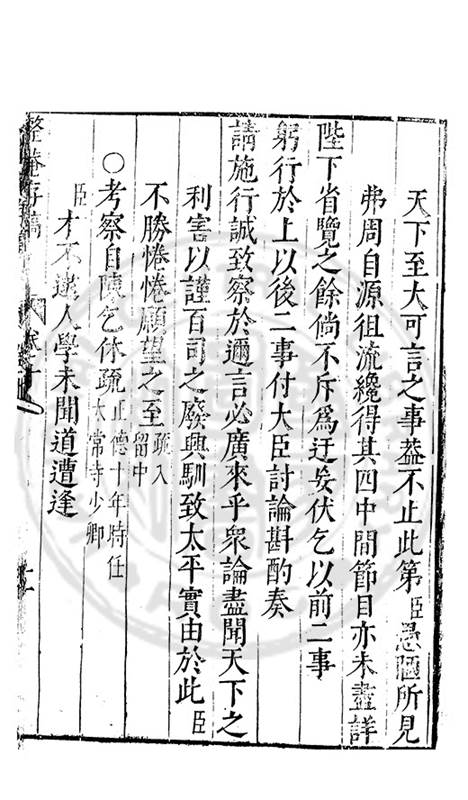 天下至大可言之事葢不止此第臣愚陋所見
弗周自源徂流纔得其四中間節目亦未盡詳
陛下省覽之餘倘不斥爲迂妄伏乞以前二事
躬行於上以後二事付大臣討論斟酌奏
請施行誠致察於邇言必廣來乎衆論盡聞天下之
利害以謹百司之廢興馴致太平實由於此臣
不勝惓惓願望之至疏入留中
○考察自陳乞休疏正德十年時任太常寺少卿
臣才不逮人學未聞道遭逢
整菴存稿